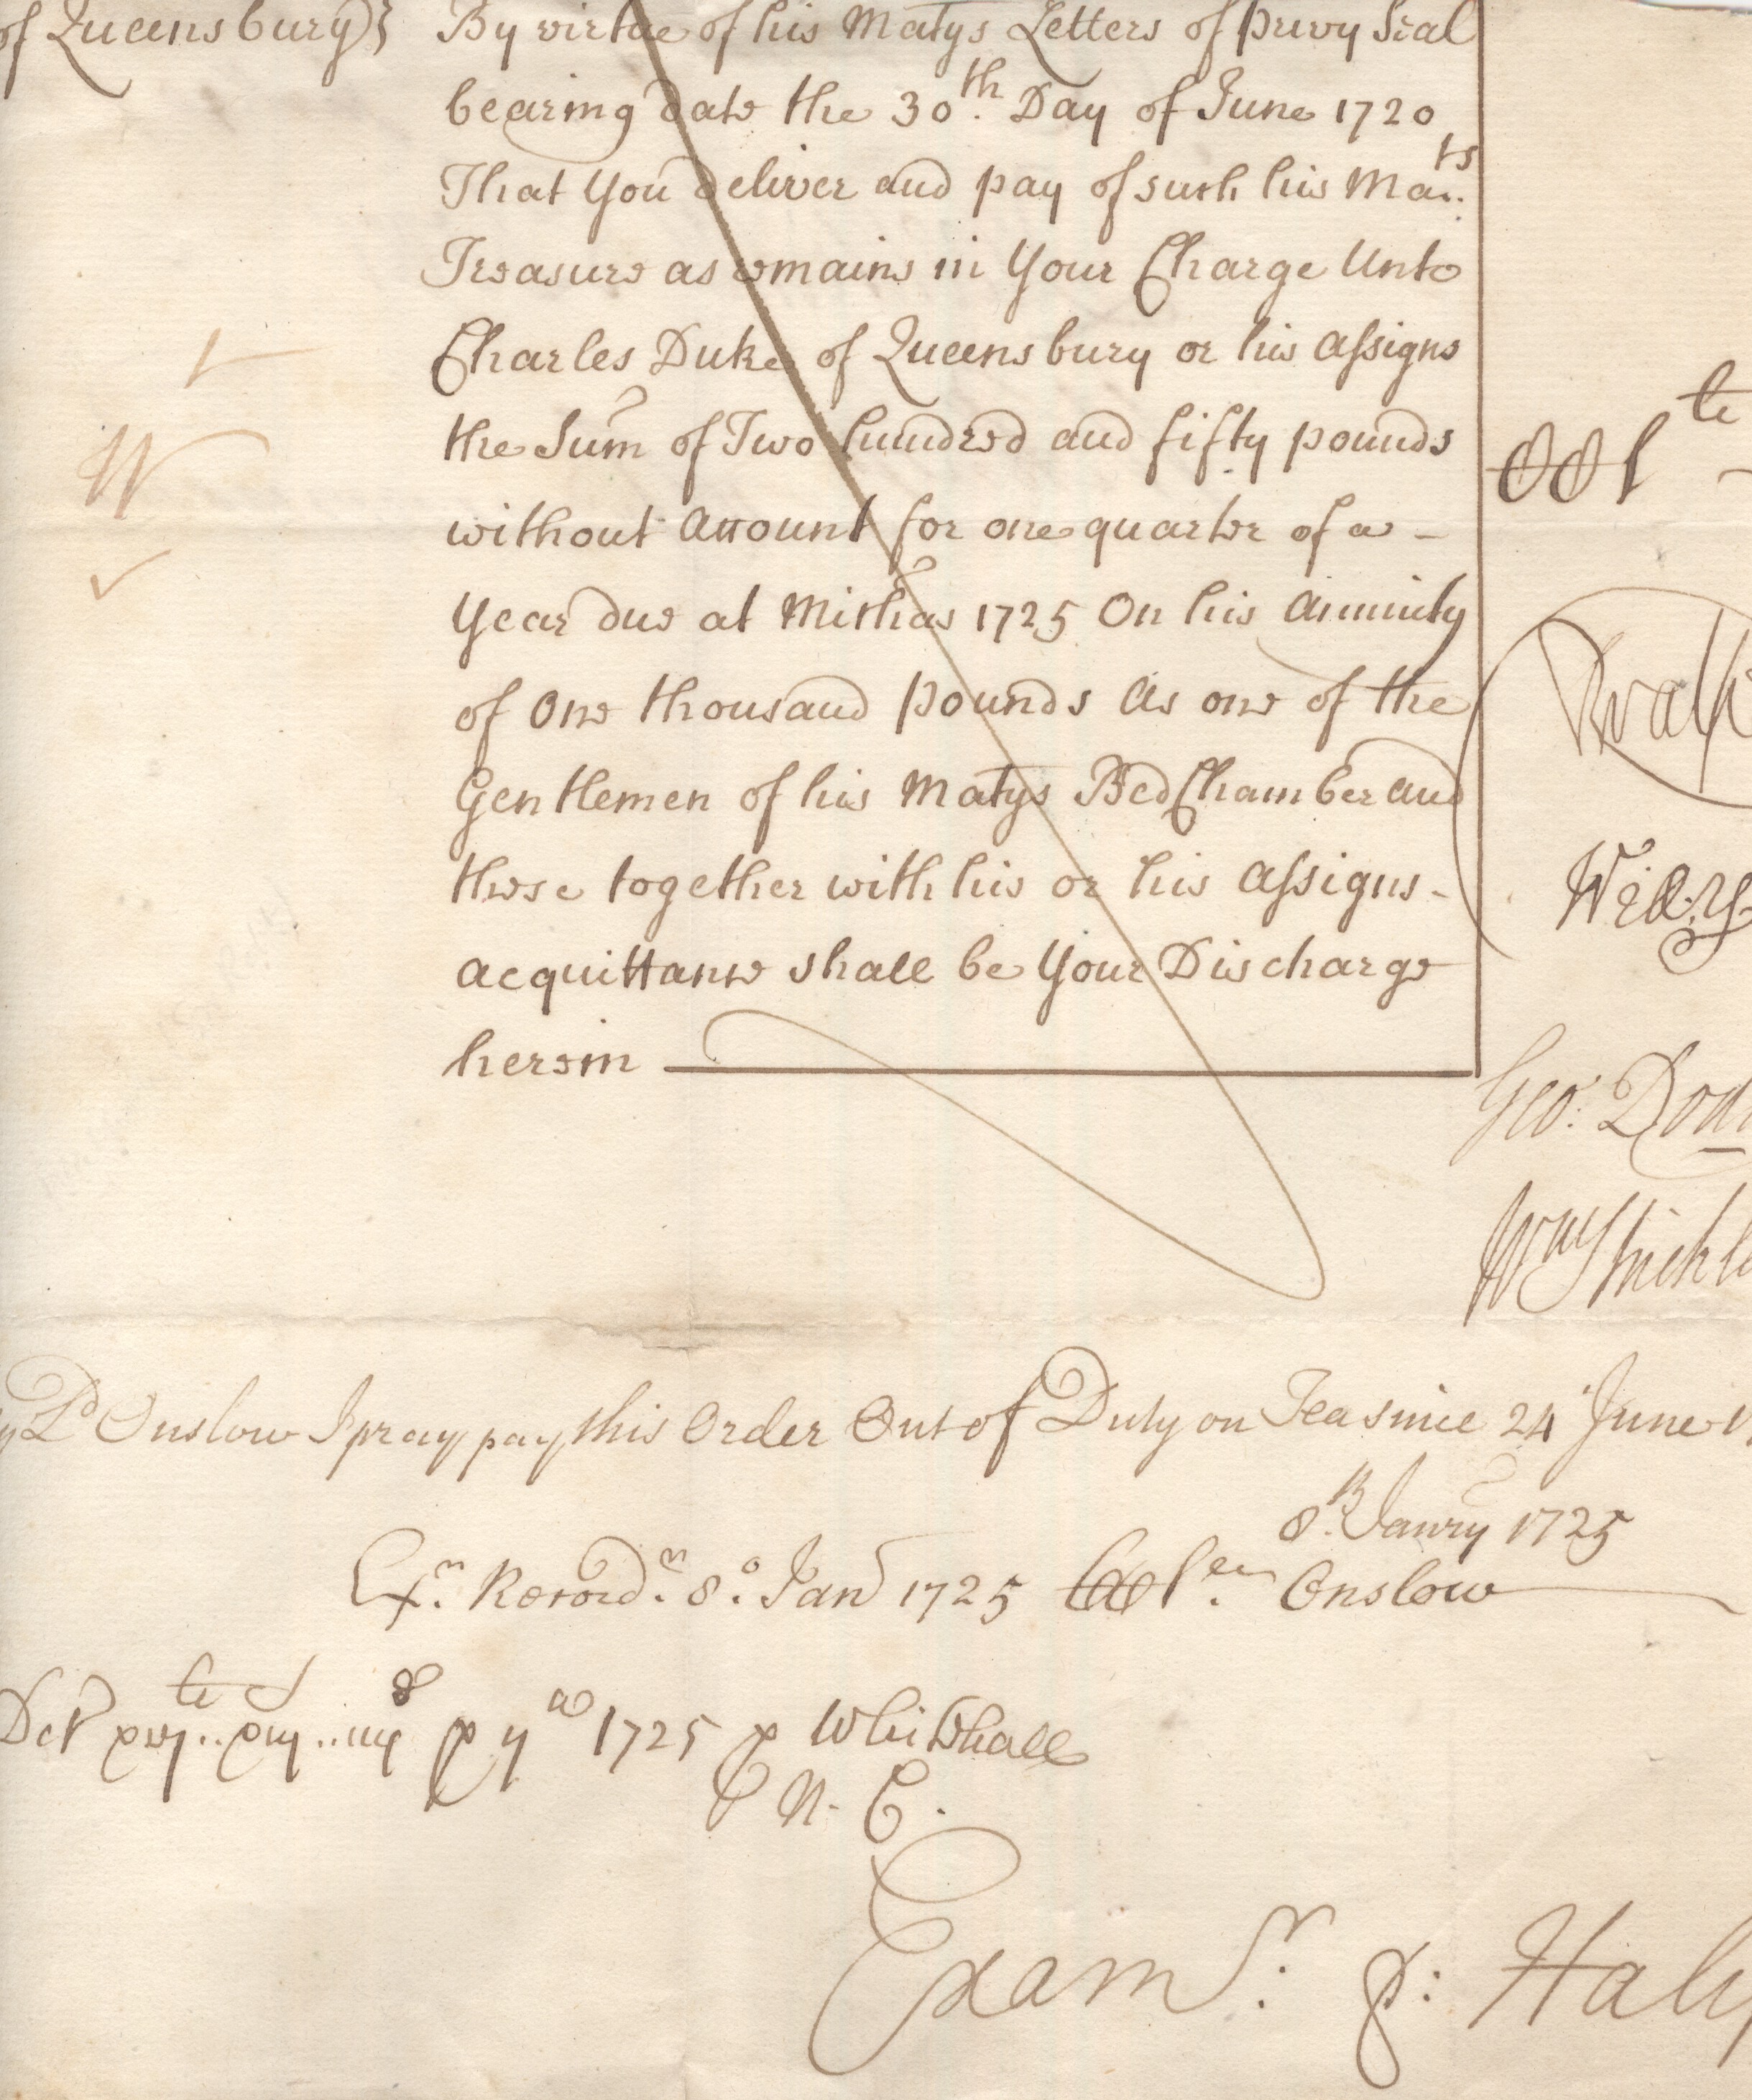 of Queensbury} By virtue of his Matys Letters of privy Seal
bearing date the 30th. Day of June 1720
That You deliver and pay of such his Mats.
Treasure as remains in Your Charge Unto
Charles Duke of Queensbury or his assigns
the Sum of Two hundred and fifty pounds
without account for one quarter of a -
Year due at Michas 1725 On his Annuity
of One thousand pounds as one of the
Gentlemen of his Matys BedChamber and
these together with his or his assigns -
acquittance shall be Your Discharge
herein
Geo: Dod
Wm Strickl
Ld Onslow I pray pay this Order Out of Duty on Tea since 24 June 1
8th. Janry 1725
Recordr. 8o. Jan 1725 Onslow
1725 p Whitehall
N. C.
Examr. p: Hali